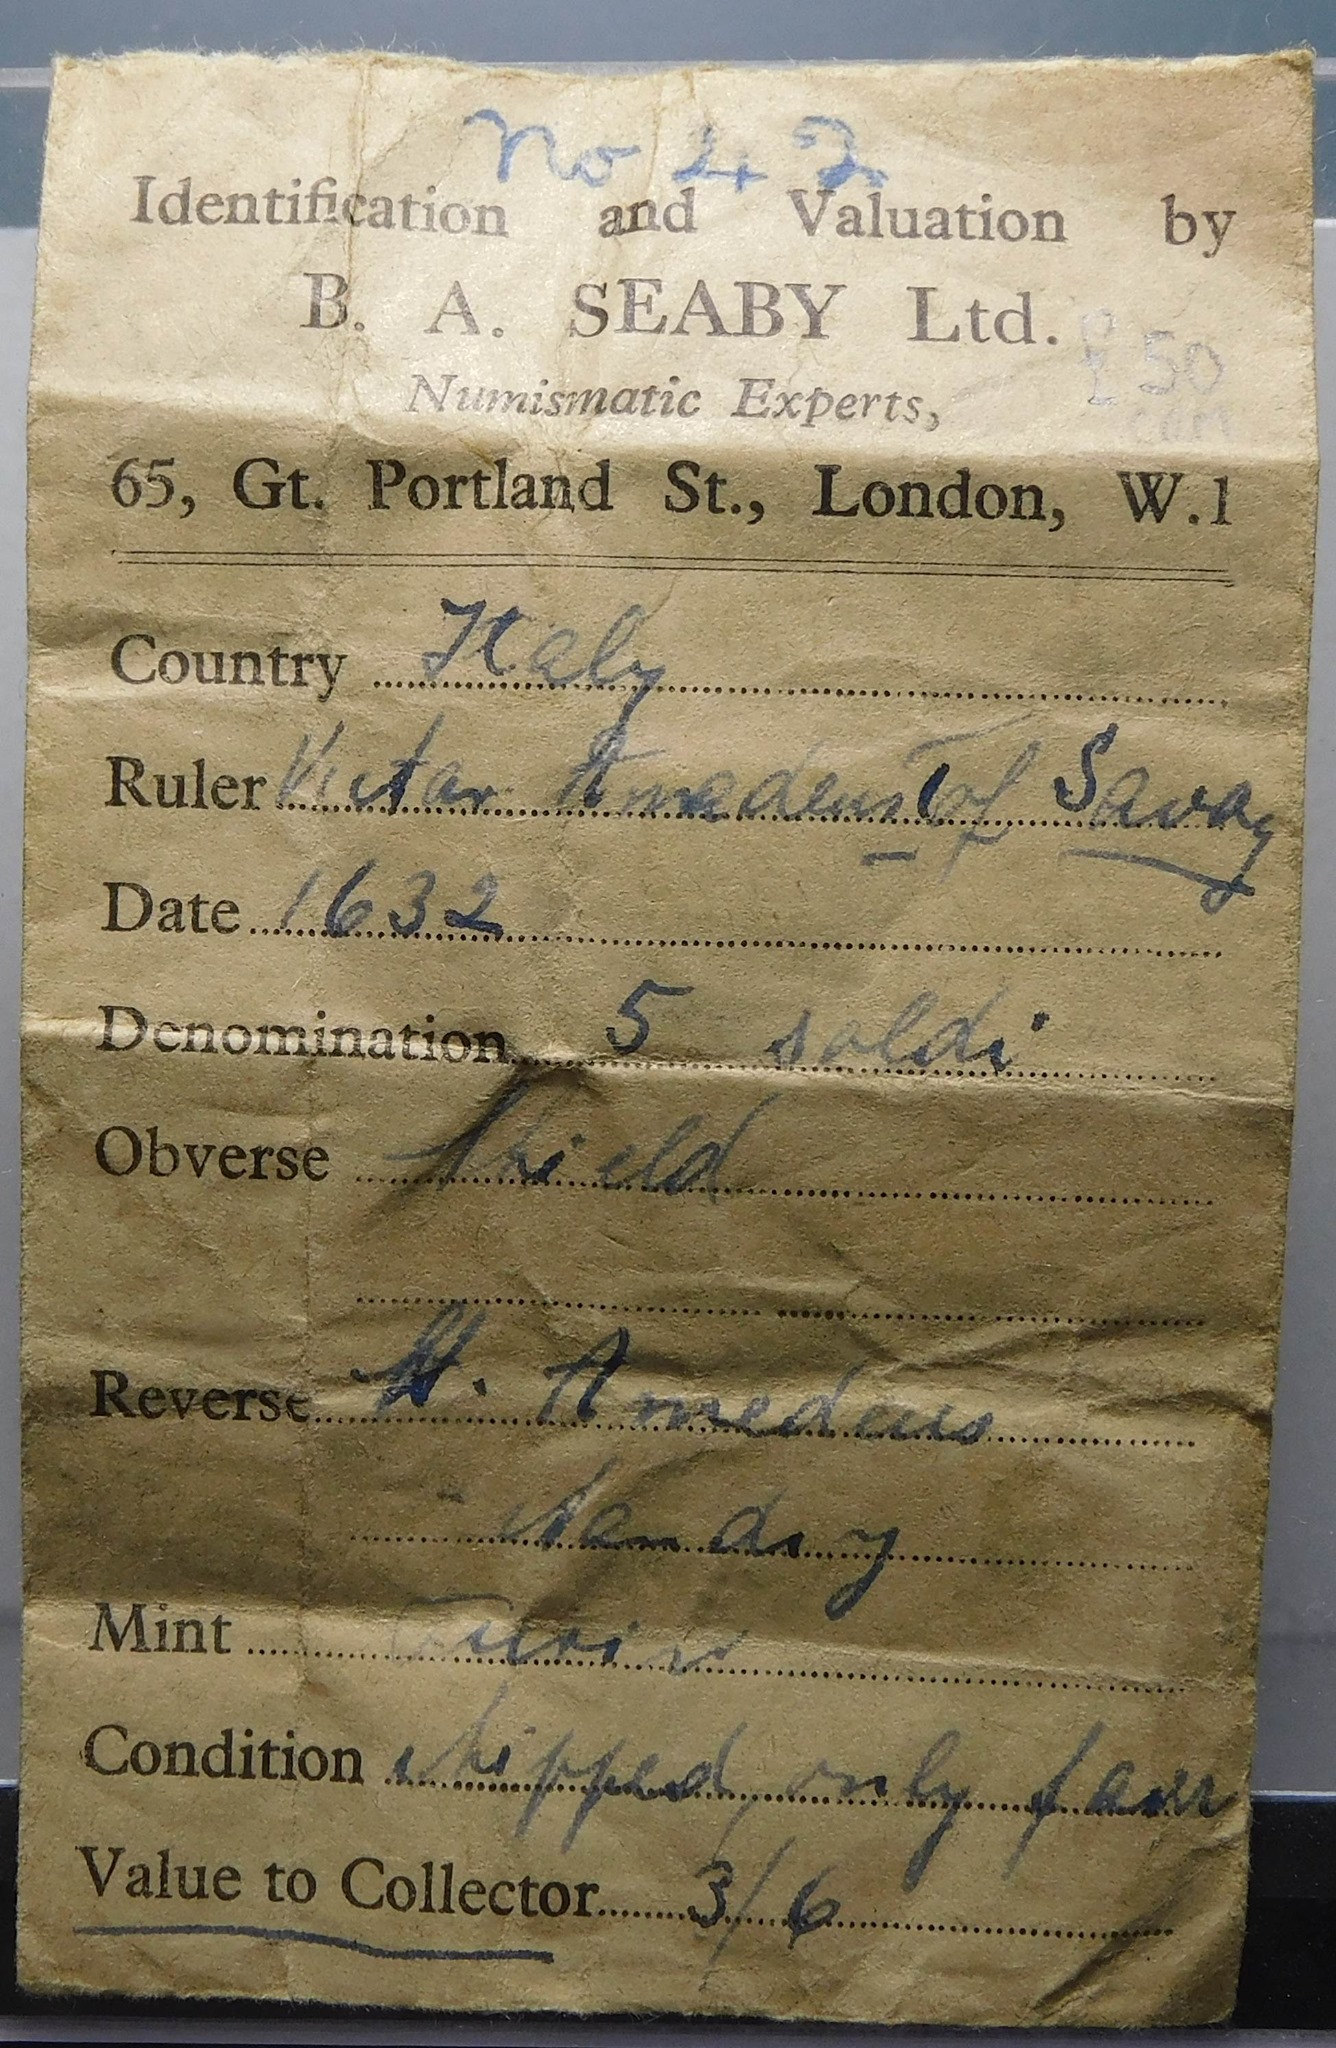 No 42
Identification and Valuation by
B. A. SEABY Ltd.
£50
Numismatic Experts,
65, Gt. Portland St., London, W.1
Country Italy
Ruler Victor Amadeus I of Savoy
Date 1632
Denomination 5 soldi
Obverse Shield
Reverse St. Amedeus
standing
Mint Turin
Condition chipped, only fair
Value to Collector 3/6